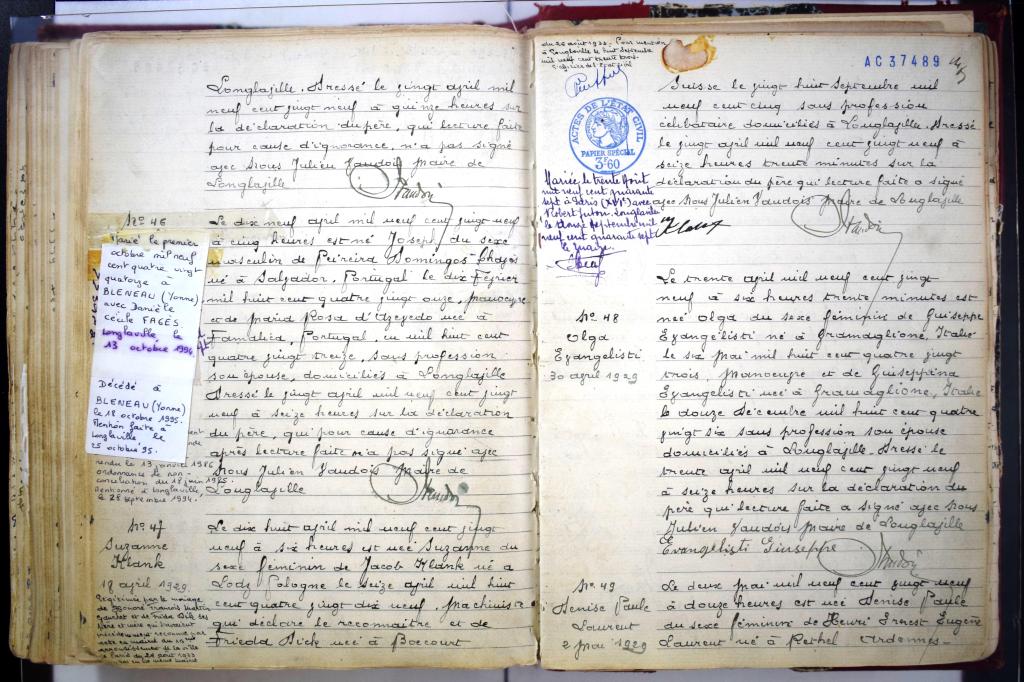 Longlaville. Dressé le vingt avril mil
neuf cent vingt neuf à quinze heures sur
la déclaration du père, qui lecture faite
pour cause d'ignorance, n'a pas signé
avec Nous Julien Vaudois Maire de
Longlaville
No 46
Marié le premier
octobre mil neuf
cent quatre vingt
quatorze à
BLENEAU (Yonne)
avec Danièle
Cécile FAGES.
Longlaville, le
13 octobre 1994
Décédé à
BLENEAU (Yonne)
le 18 octobre 1995.
Mention faite à
Longlaville le
25 octobre 95.
rendu le 13 janvier 1986
ordonnance de non
conciliation du 18 juin 1985.
Mentionné à Longlaville
le 28 septembre 1994.
Le dix neuf avril mil neuf cent vingt neuf
à cinq heures est né Joseph du sexe
masculin de Pereira Domingos
né à Salvador, Portugal le dix Février
mil huit cent quatre vingt onze, manoeuvre
et de Maria Rosa d'Azevedo née à
Famalica, Portugal, en mil huit cent
quatre vingt treize, sans profession
son épouse, domiciliés à Longlaville
Dressé le vingt avril mil neuf cent vingt
neuf à seize heures sur la déclaration
du père, qui pour cause d'ignorance
après lecture faite n'a pas signé avec
Nous Julien Vaudois Maire de
Longlaville
No 47
Suzanne
Klank
18 avril 1929
Le dix huit avril mil neuf cent vingt
neuf à six heures est née Suzanne du
sexe féminin de Jacob Klank né à
Lodz Pologne le seize avril mil huit
cent quatre vingt dix neuf, machiniste
qui déclare le reconnaître et de
Frieda Dick née à Boecourt
du 26 août 1933. Pour mention
à Longlaville le huit Septembre
mil neuf cent trente trois.
L'officier de l'Etat civil
ACTES DE L'ÉTAT CIVIL
PAPIER SPÉCIAL
3F60
AC37489
Mariée le trente Août
mil neuf cent quarante
sept à Paris (XVIe) avec
Robert Longlaville
le douze Septembre mil
neuf cent quarante sept
le Maire.
Suisse le vingt huit Septembre mil
neuf cent cinq sans profession
célibataire domiciliés à Longlaville. Dressé
le vingt avril mil neuf cent vingt neuf à
seize heures trente minutes sur la
déclaration du père qui lecture faite a signé
avec Nous Julien Vaudois Maire de Longlaville
Klank
No 48
Olga
Evangelisti
30 avril 1929
Le trente avril mil neuf cent vingt
neuf à six heures trente minutes est
née Olga du sexe féminin de Guiseppe
Evangelisti né à Granaglione, Italie
le six mai mil huit cent quatre vingt
trois, manoeuvre et de Guiseppina
Evangelisti née à Granaglione, Italie
le douze Décembre mil huit cent quatre
vingt six sans profession son épouse
domiciliés à Longlaville. Dressé le
trente avril mil neuf cent vingt neuf
à seize heures sur la déclaration du
père qui lecture faite a signé avec Nous
Julien Vaudois Maire de Longlaville
Evangelisti Giuseppe
No 49
Denise Paule
Laurent
2 Mai 1929
Le deux mai mil neuf cent vingt neuf
à douze heures est née Denise Paule
du sexe féminin de Henri Ernest Eugène
Laurent né à Rethel Ardennes